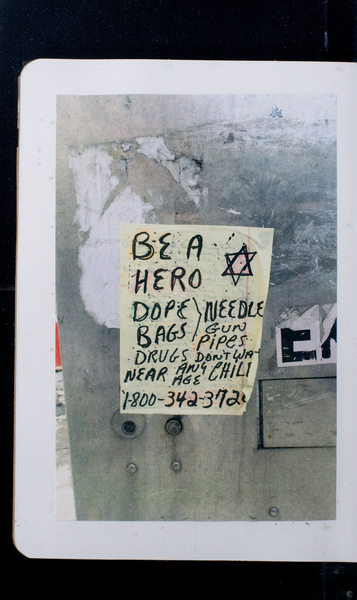 BE A
HERO
DOPE \ NEEDLE
BAGS / GUN
PIPES
DRUGS DON'T WA-
NEAR ANY CHILI
AGE
1-800-342-372